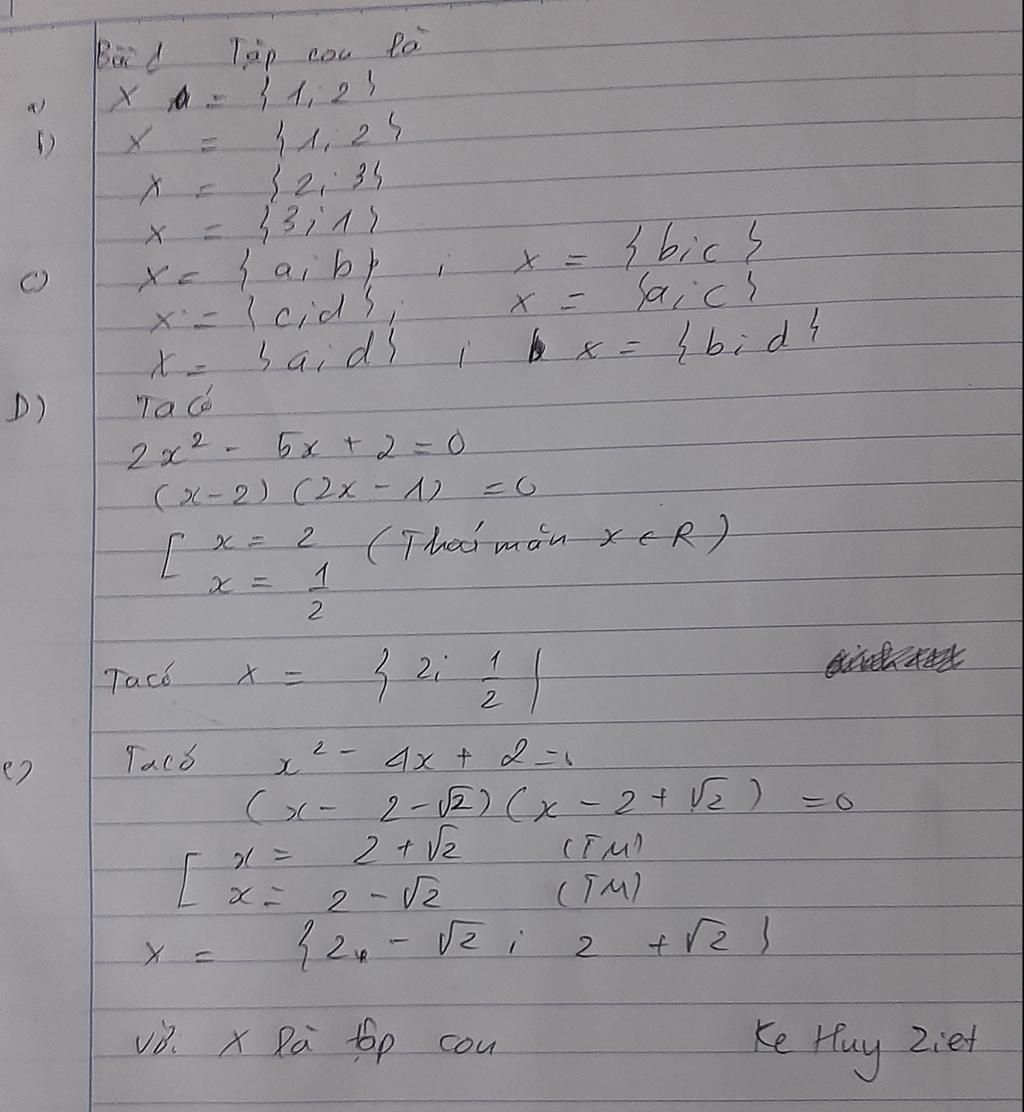 Bài 1 Tập con là
a) X = {1; 2}
b) X = {1; 2}
X = {2; 3}
X = {3; 1}
c) X = {a; b} ; X = {b; c}
X = {c; d} ; X = {a; c}
X = {a; d} ; X = {b; d}
D) Ta có
2x² - 5x + 2 = 0
(x-2) (2x - 1) = 0
[ x = 2 (Thoả mãn x ∈ R)
x = 1/2
Ta có X = {2; 1/2}
e) Ta có x² - 4x + 2 = 0
(x - 2 - √2) (x - 2 + √2) = 0
[ x = 2 + √2 (TM)
x = 2 - √2 (TM)
X = {2 - √2 ; 2 + √2}
Với X là tập con Ke Huy Ziet